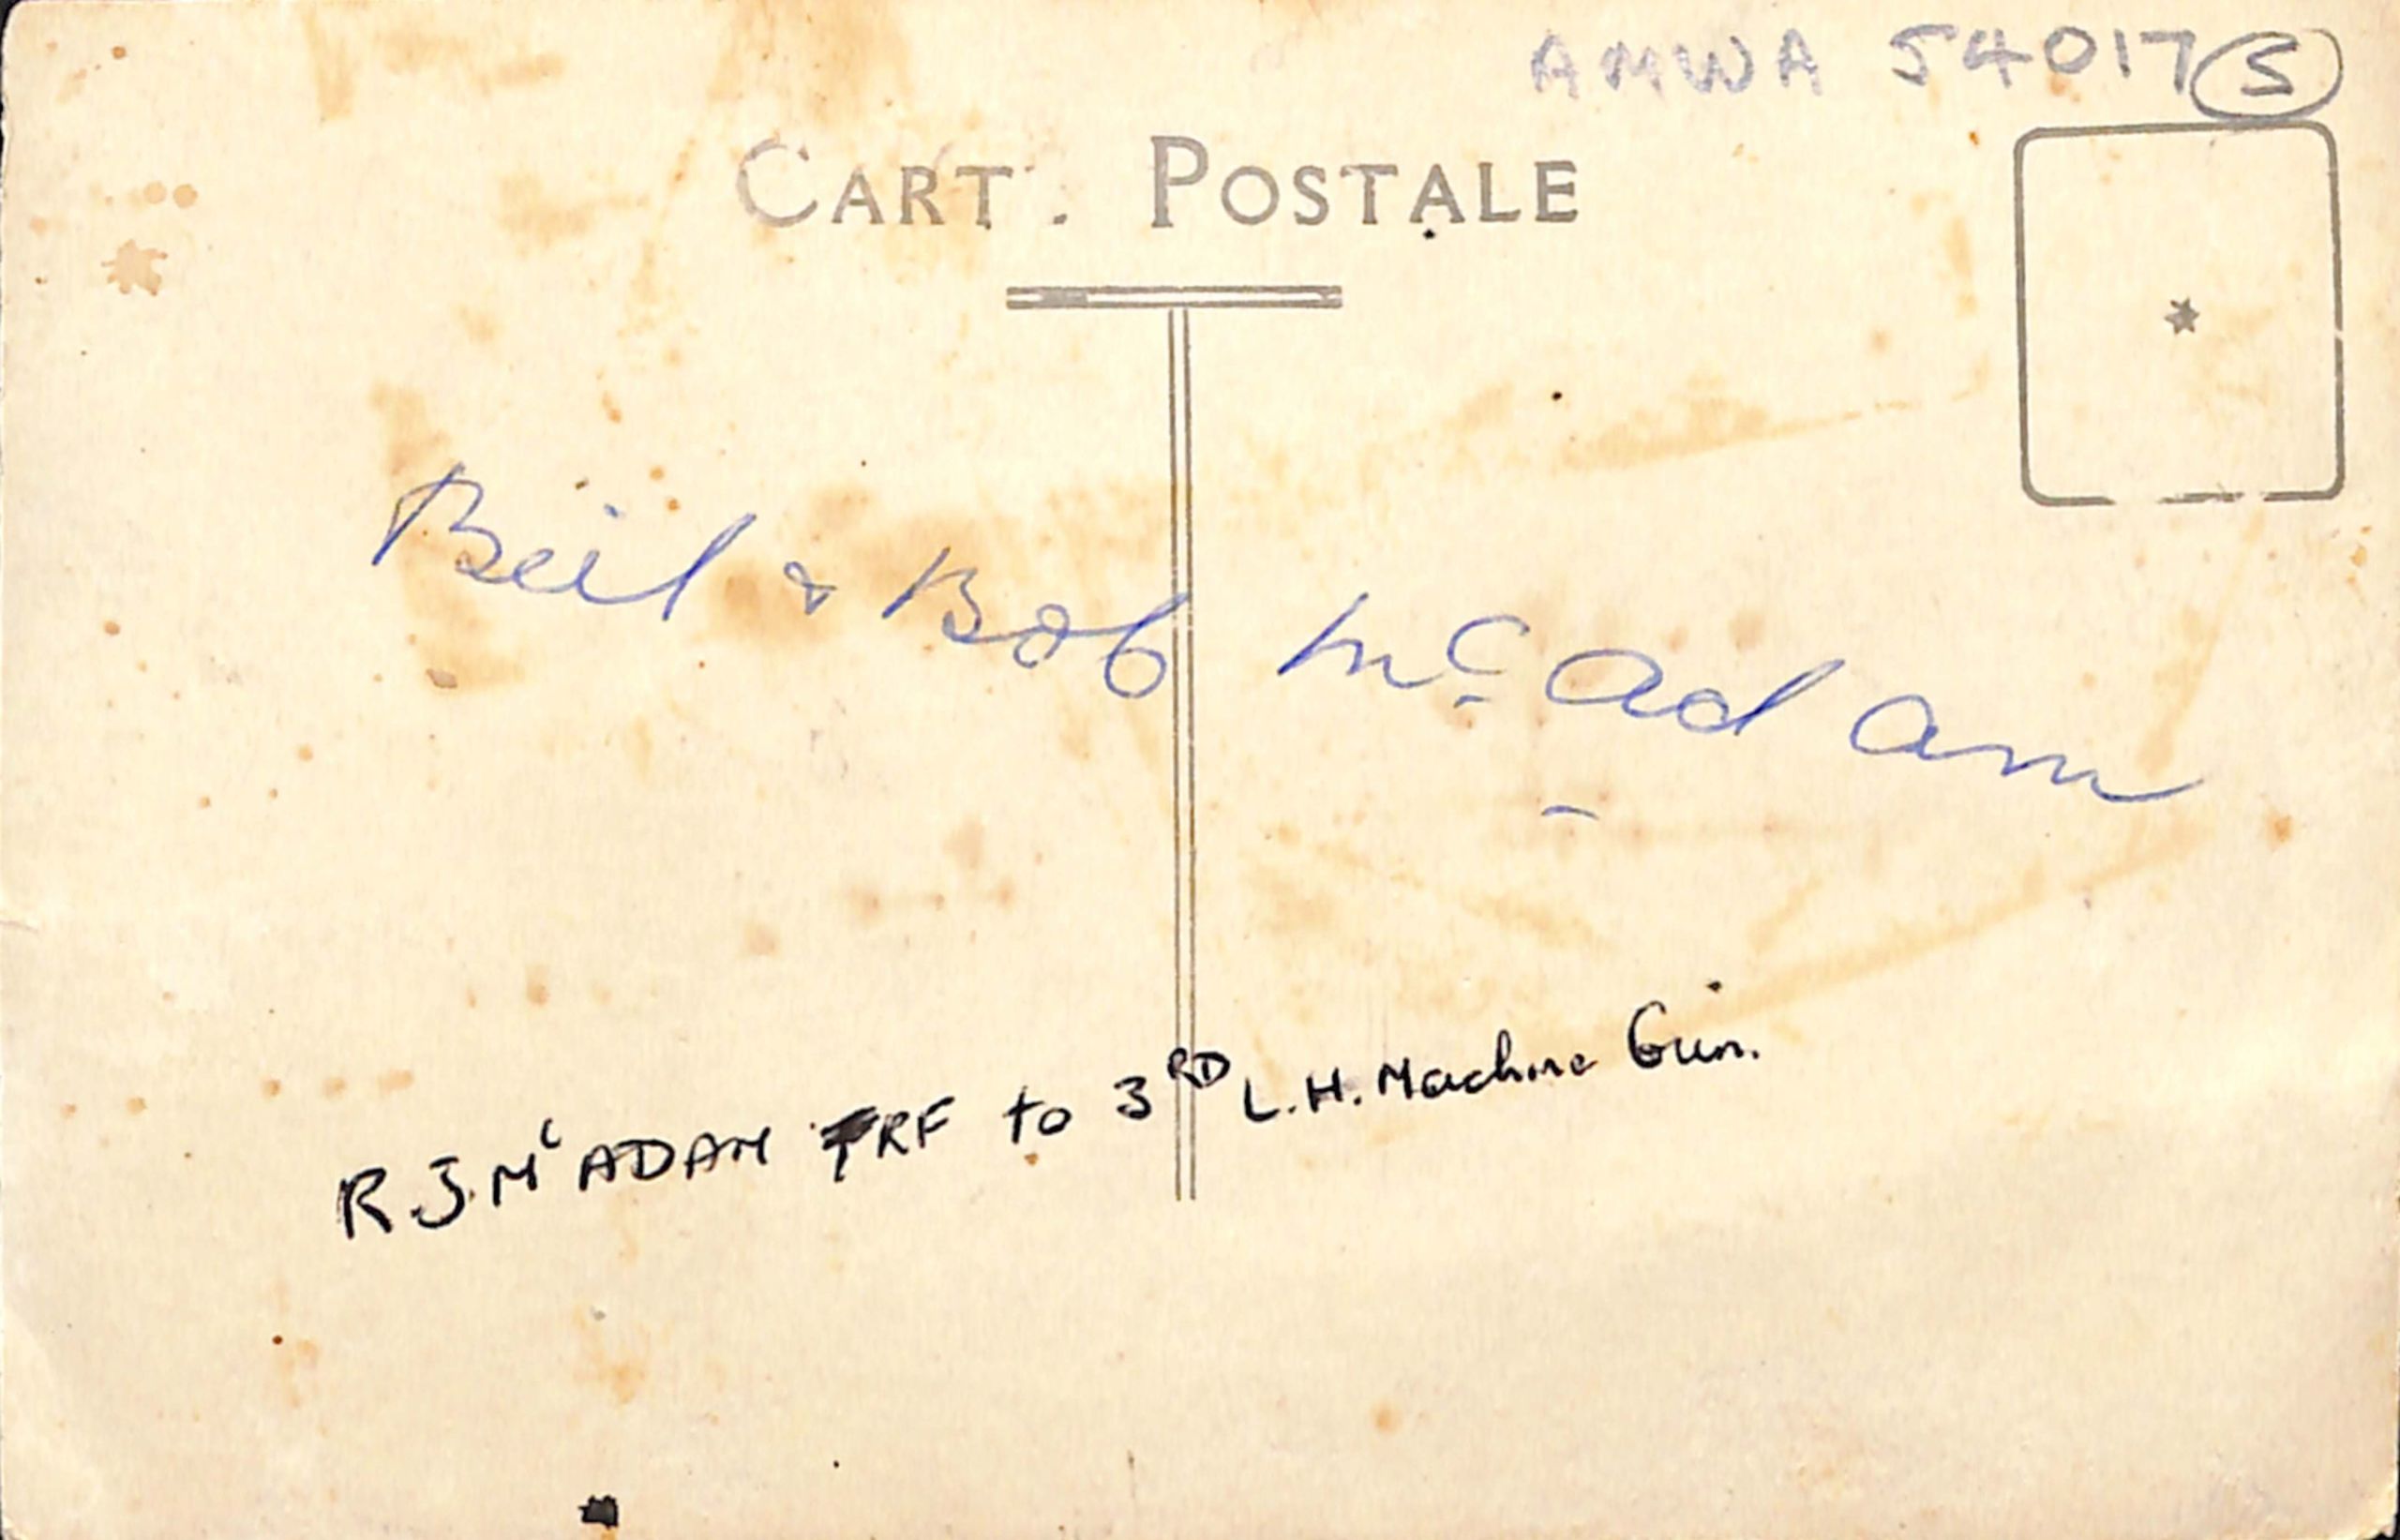 AMWA 54017 5
CART. POSTALE
Bill & Bob McAdam
R J McADAM TRF to 3RD L.H. Machine Gun.